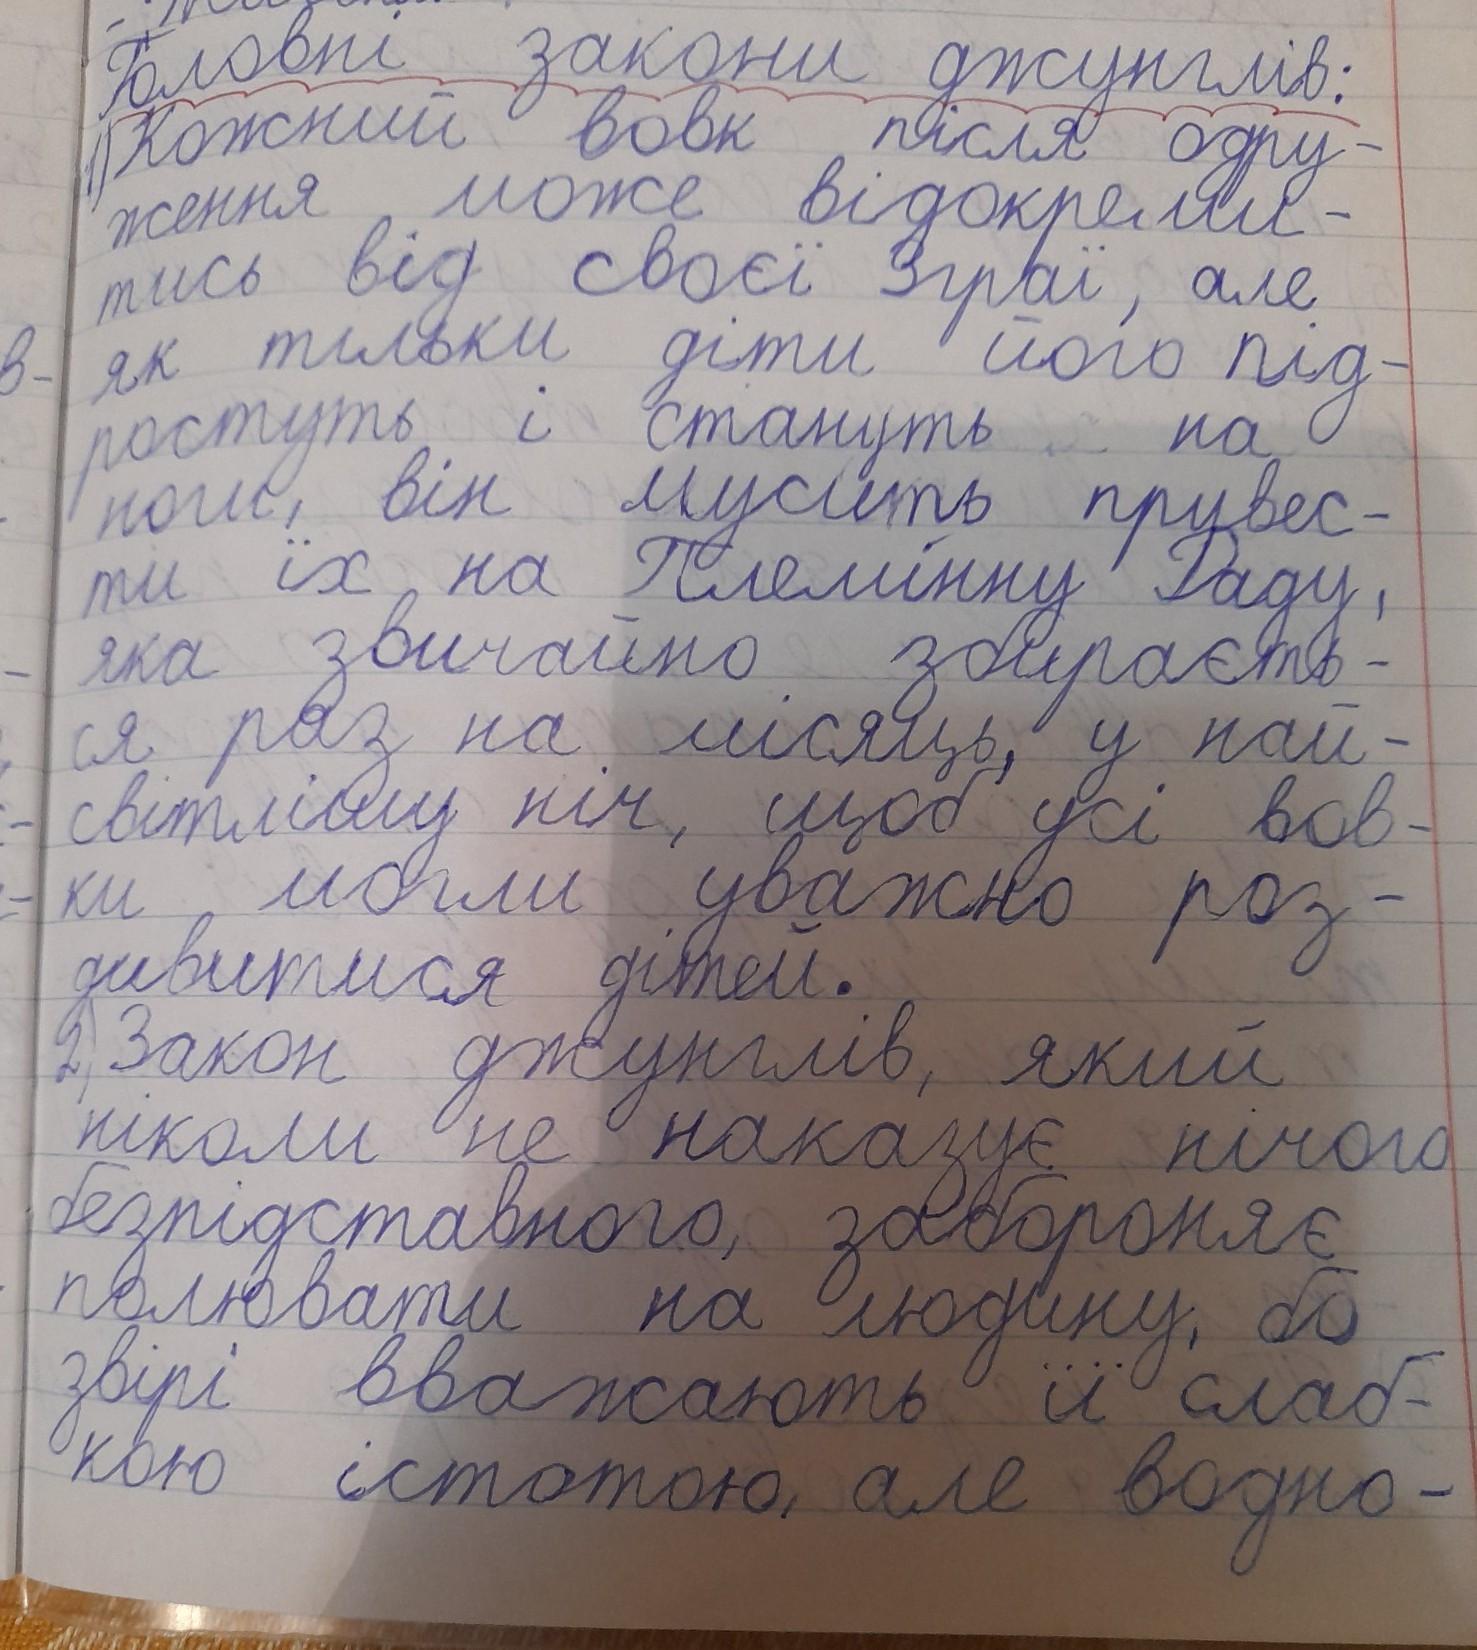 Головні закони джунглів:
1) Кожний вовк після одру-
ження може відокреми-
тись від своєї Зграї, але
як тільки діти його під-
ростуть і стануть на
ноги, він мусить привес-
ти їх на Племінну Раду,
яка звичайно збираєть-
ся раз на місяць, у най-
світлішу ніч, щоб усі вов-
ки могли уважно роз-
дивитися дітей.
2) Закон джунглів, який
ніколи не наказує нічого
безпідставного, забороняє
полювати на людину, бо
звірі вважають її слаб-
кою істотою, але водно-